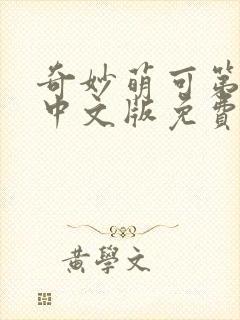 奇妙萌可第
中文版免費
黃學文